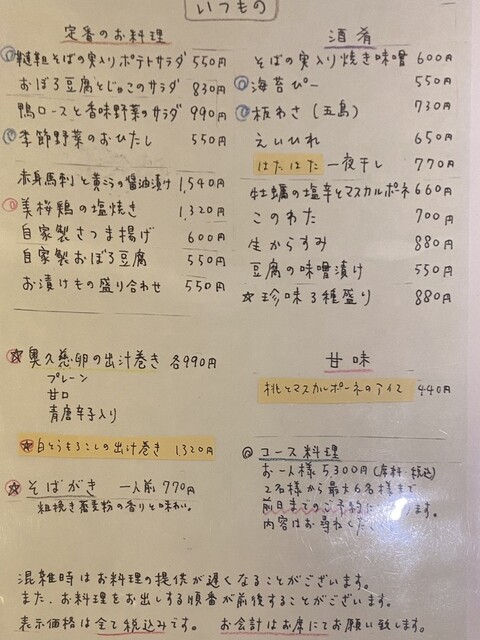 いつもの
定番のお料理
韃靼そばの実入りポテトサラダ 550円
おぼろ豆腐とじゃこのサラダ 830円
鴨ロースと香味野菜のサラダ 990円
季節野菜のおひたし 550円
赤身馬刺と黄ニラの醤油漬け 1,540円
美桜鶏の塩焼き 1,320円
自家製さつま揚げ 600円
自家製おぼろ豆腐 550円
お漬けもの盛り合わせ 550円
☆奥久慈卵の出汁巻き 各990円
プレーン
甘口
青唐辛子入り
☆白とうもろこしの出汁巻き 1320円
☆そばがき 一人前 770円
粗挽き蕎麦粉の香りと味わい。
酒肴
そばの実入り焼き味噌 600円
海苔ぴー 550円
板わさ(五島) 730円
えいひれ 650円
はたはた一夜干し 770円
牡蠣の塩辛とマスカルポーネ 660円
このわた 700円
生からすみ 880円
豆腐の味噌漬け 550円
☆珍味3種盛り 880円
甘味
桃とマスカルポーネのアイス 440円
◎コース料理
お一人様 5,300円(席料・税込)
2名様から最大6名様まで
前日までのご予約に ます。
内容はお尋ねくだ
混雑時はお料理の提供が遅くなることがございます。
また、お料理をお出しする順番が前後することがございます。
表示価格は全て税込みです。 お会計はお席にてお願い致します。